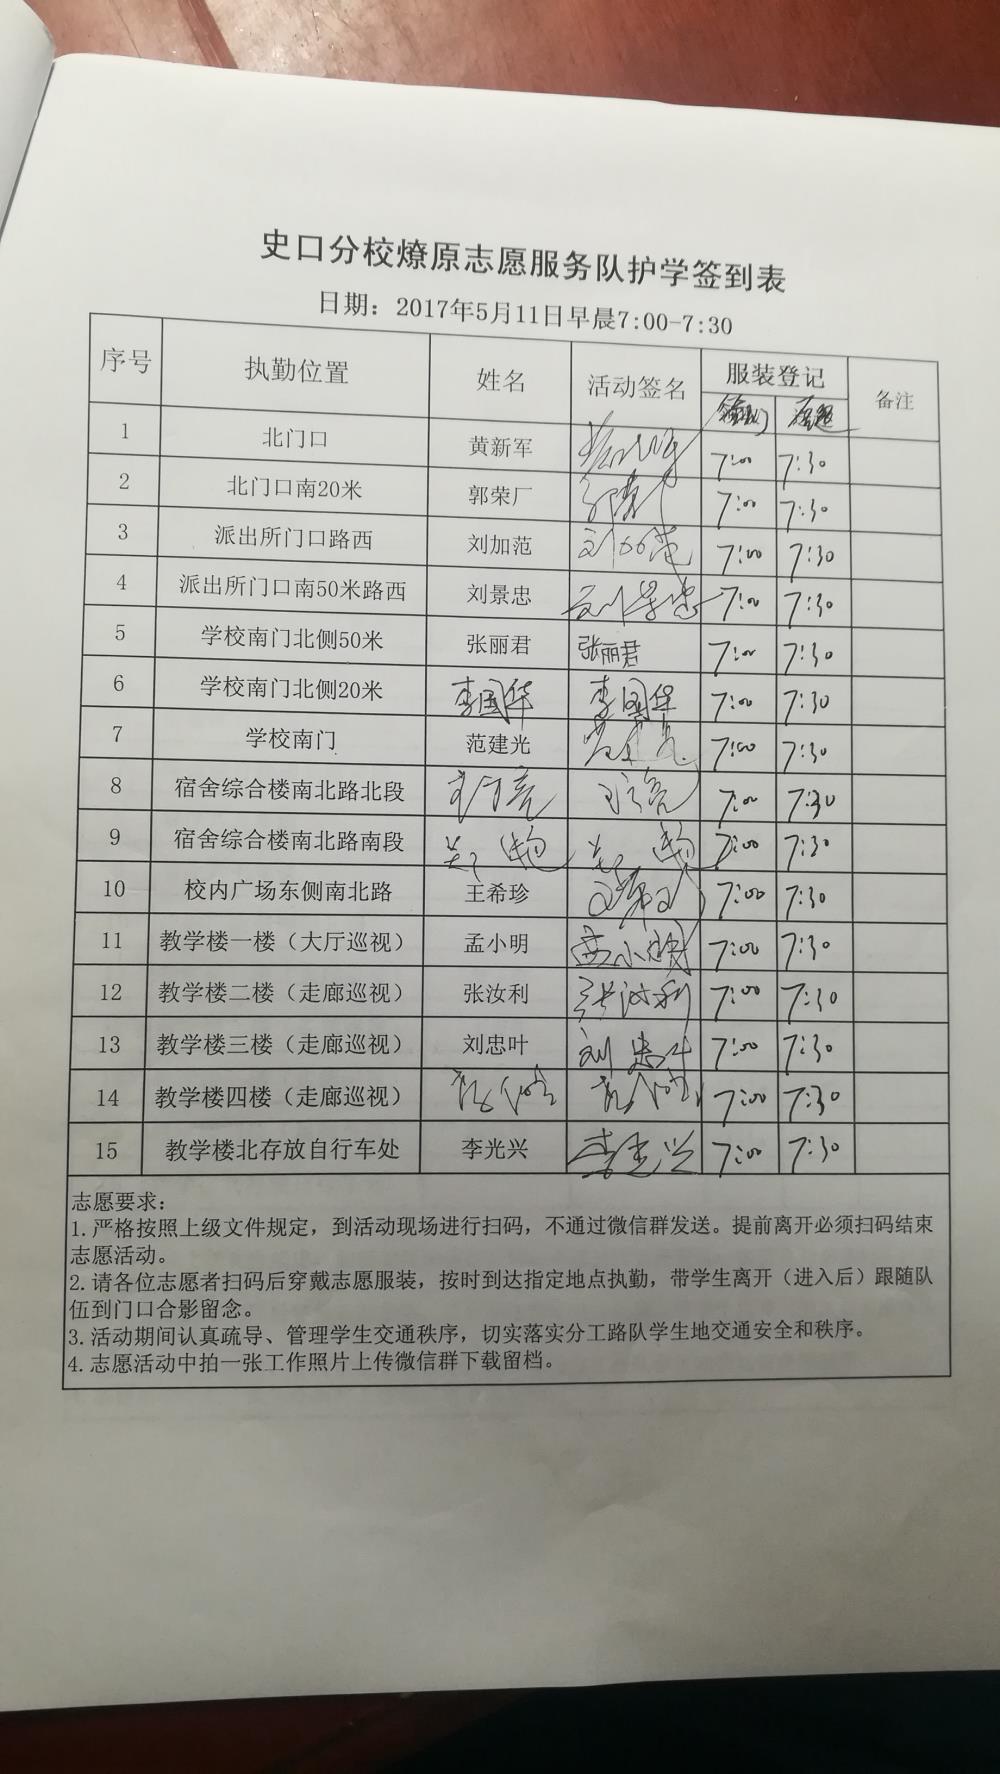 史口分校燎原志愿服务队护学签到表
日期：2017年5月11日早晨7:00-7:30
序号 执勤位置 姓名 活动签名 服装登记 备注
1 北门口 黄新军 7:00 7:30
2 北门口南20米 郭荣厂 7:00 7:30
3 派出所门口路西 刘加范 刘加范 7:00 7:30
4 派出所门口南50米路西 刘景忠 刘景忠 7:00 7:30
5 学校南门北侧50米 张丽君 张丽君 7:00 7:30
6 学校南门北侧20米 李国华 李国华 7:00 7:30
7 学校南门 范建光 7:00 7:30
8 宿舍综合楼南北路北段 7:00 7:30
9 宿舍综合楼南北路南段 7:00 7:30
10 校内广场东侧南北路 王希珍 7:00 7:30
11 教学楼一楼（大厅巡视） 孟小明 孟小明 7:00 7:30
12 教学楼二楼（走廊巡视） 张汝利 张汝利 7:00 7:30
13 教学楼三楼（走廊巡视） 刘忠叶 刘忠叶 7:00 7:30
14 教学楼四楼（走廊巡视） 7:00 7:30
15 教学楼北存放自行车处 李光兴 李光兴 7:00 7:30
志愿要求：
1.严格按照上级文件规定，到活动现场进行扫码，不通过微信群发送。提前离开必须扫码结束
志愿活动。
2.请各位志愿者扫码后穿戴志愿服装，按时到达指定地点执勤，带学生离开（进入后）跟随队
伍到门口合影留念。
3.活动期间认真疏导、管理学生交通秩序，切实落实分工路队学生地交通安全和秩序。
4.志愿活动中拍一张工作照片上传微信群下载留档。